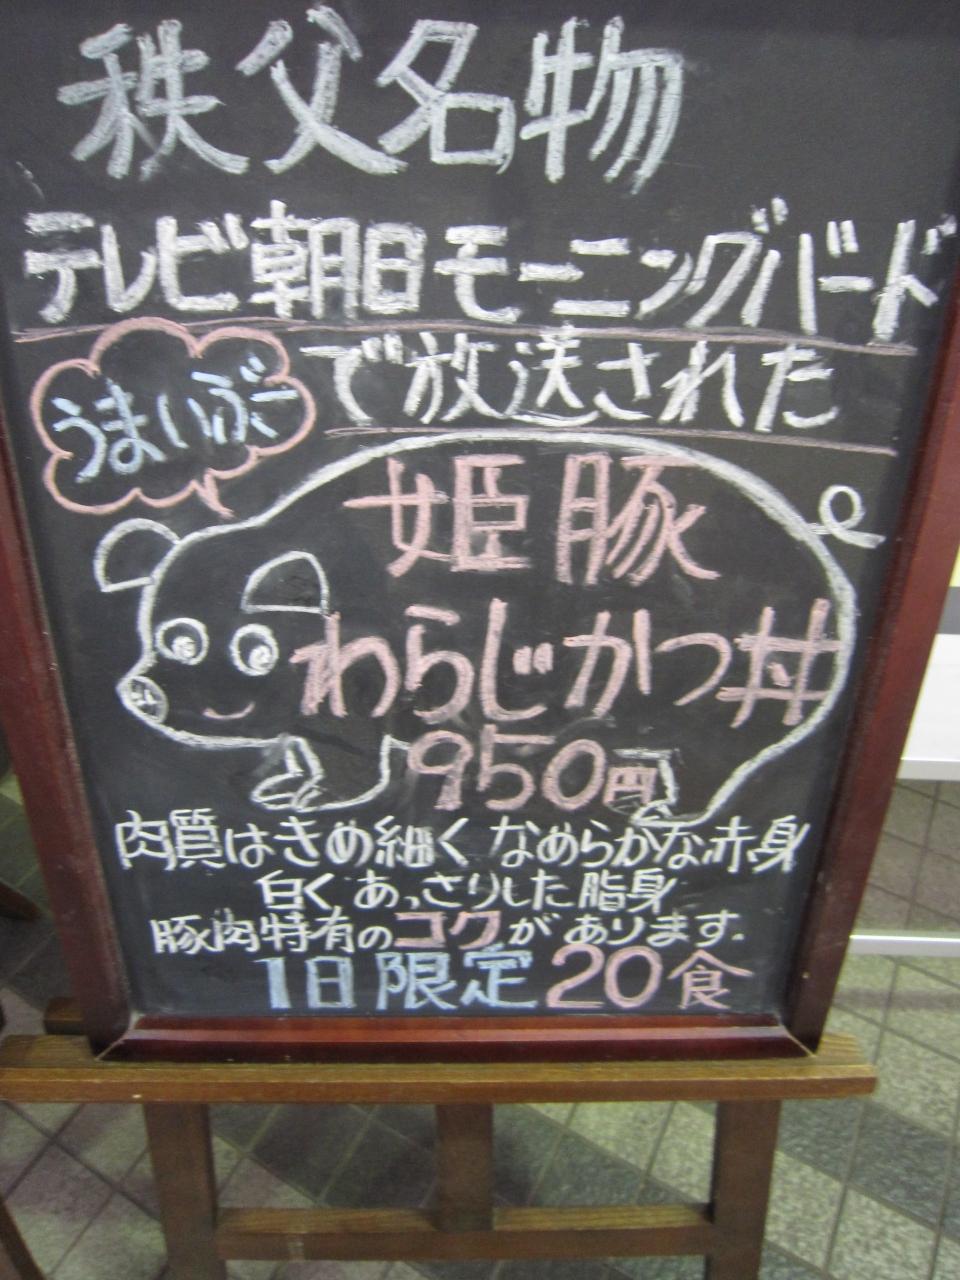 秩父名物
テレビ朝日モーニングバード
で放送された
うまいぶー
姫豚
わらじかつ丼
950円
肉質はきめ細く なめらかな赤身
白く あっさりした脂身
豚肉特有のコクがあります.
1日限定20食